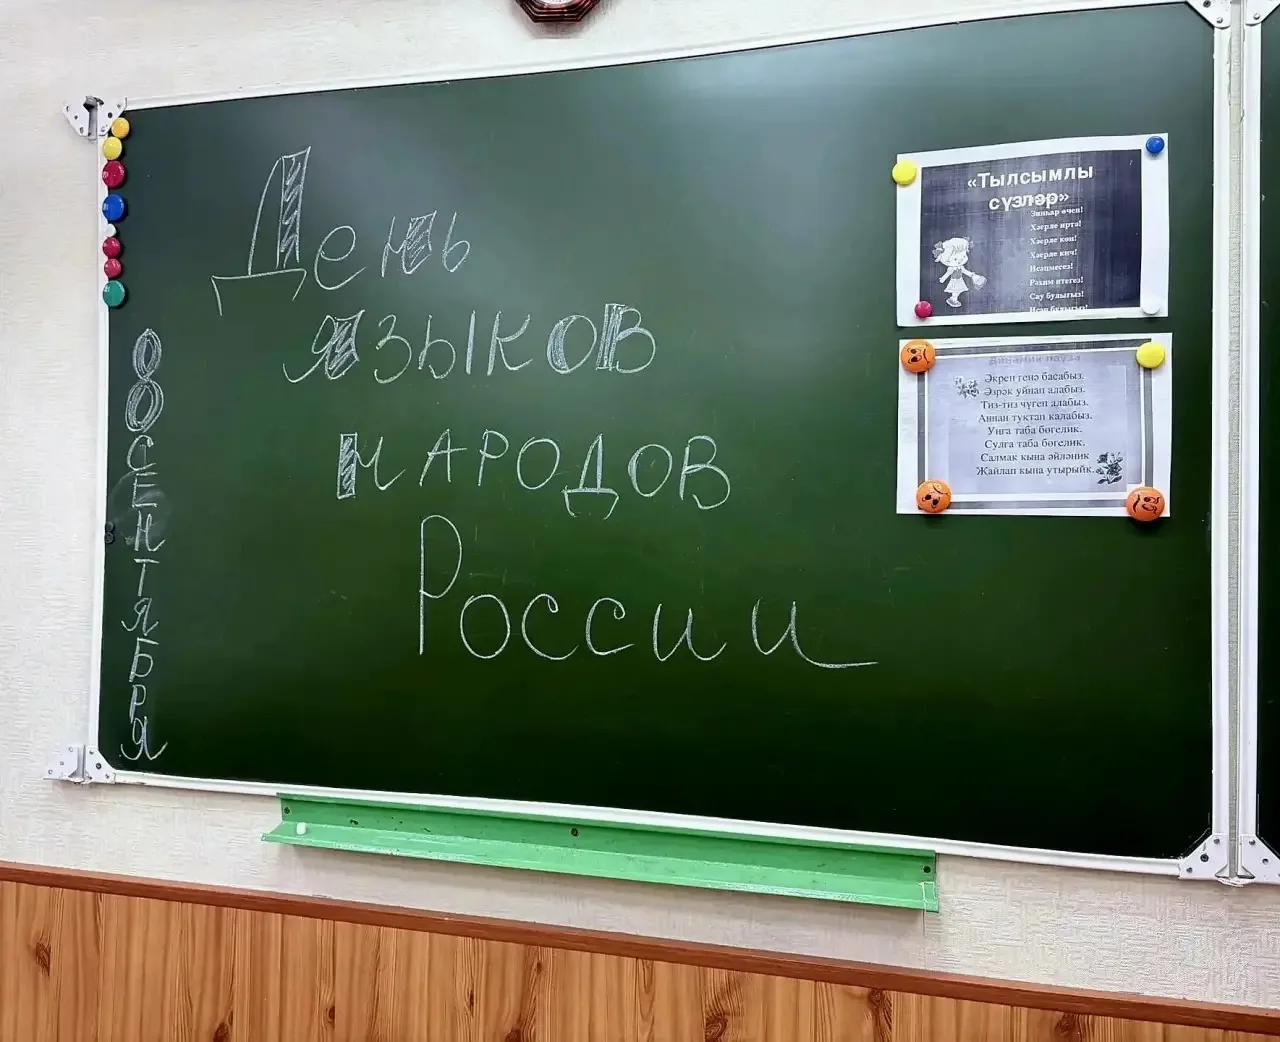 День
языков
народов
России
8 СЕНТЯБРЯ
«Тылсымлы
сүзләр»
Хәерле иртә!
Хәерле көн!
Хәерле кич!
Исәнмесез!
Рәхим итегез!
Сау булыгыз!
Динамик пауза
Әкрен генә басабыз.
Әзрәк уйнап алабыз.
Тиз-тиз чүгеп алабыз.
Аннан туктап калабыз.
Уңга таба бөгелик.
Сулга таба бөгелик.
Салмак кына әйләник
Җайлап кына утырыйк.